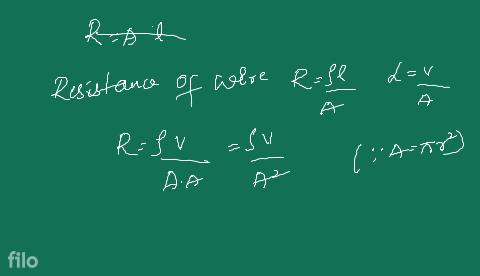 R = A l
Resistance of wire R = ρl/A l = v/A
R = ρ v/A.A = ρv/A² (∵ A = πr²)
filo